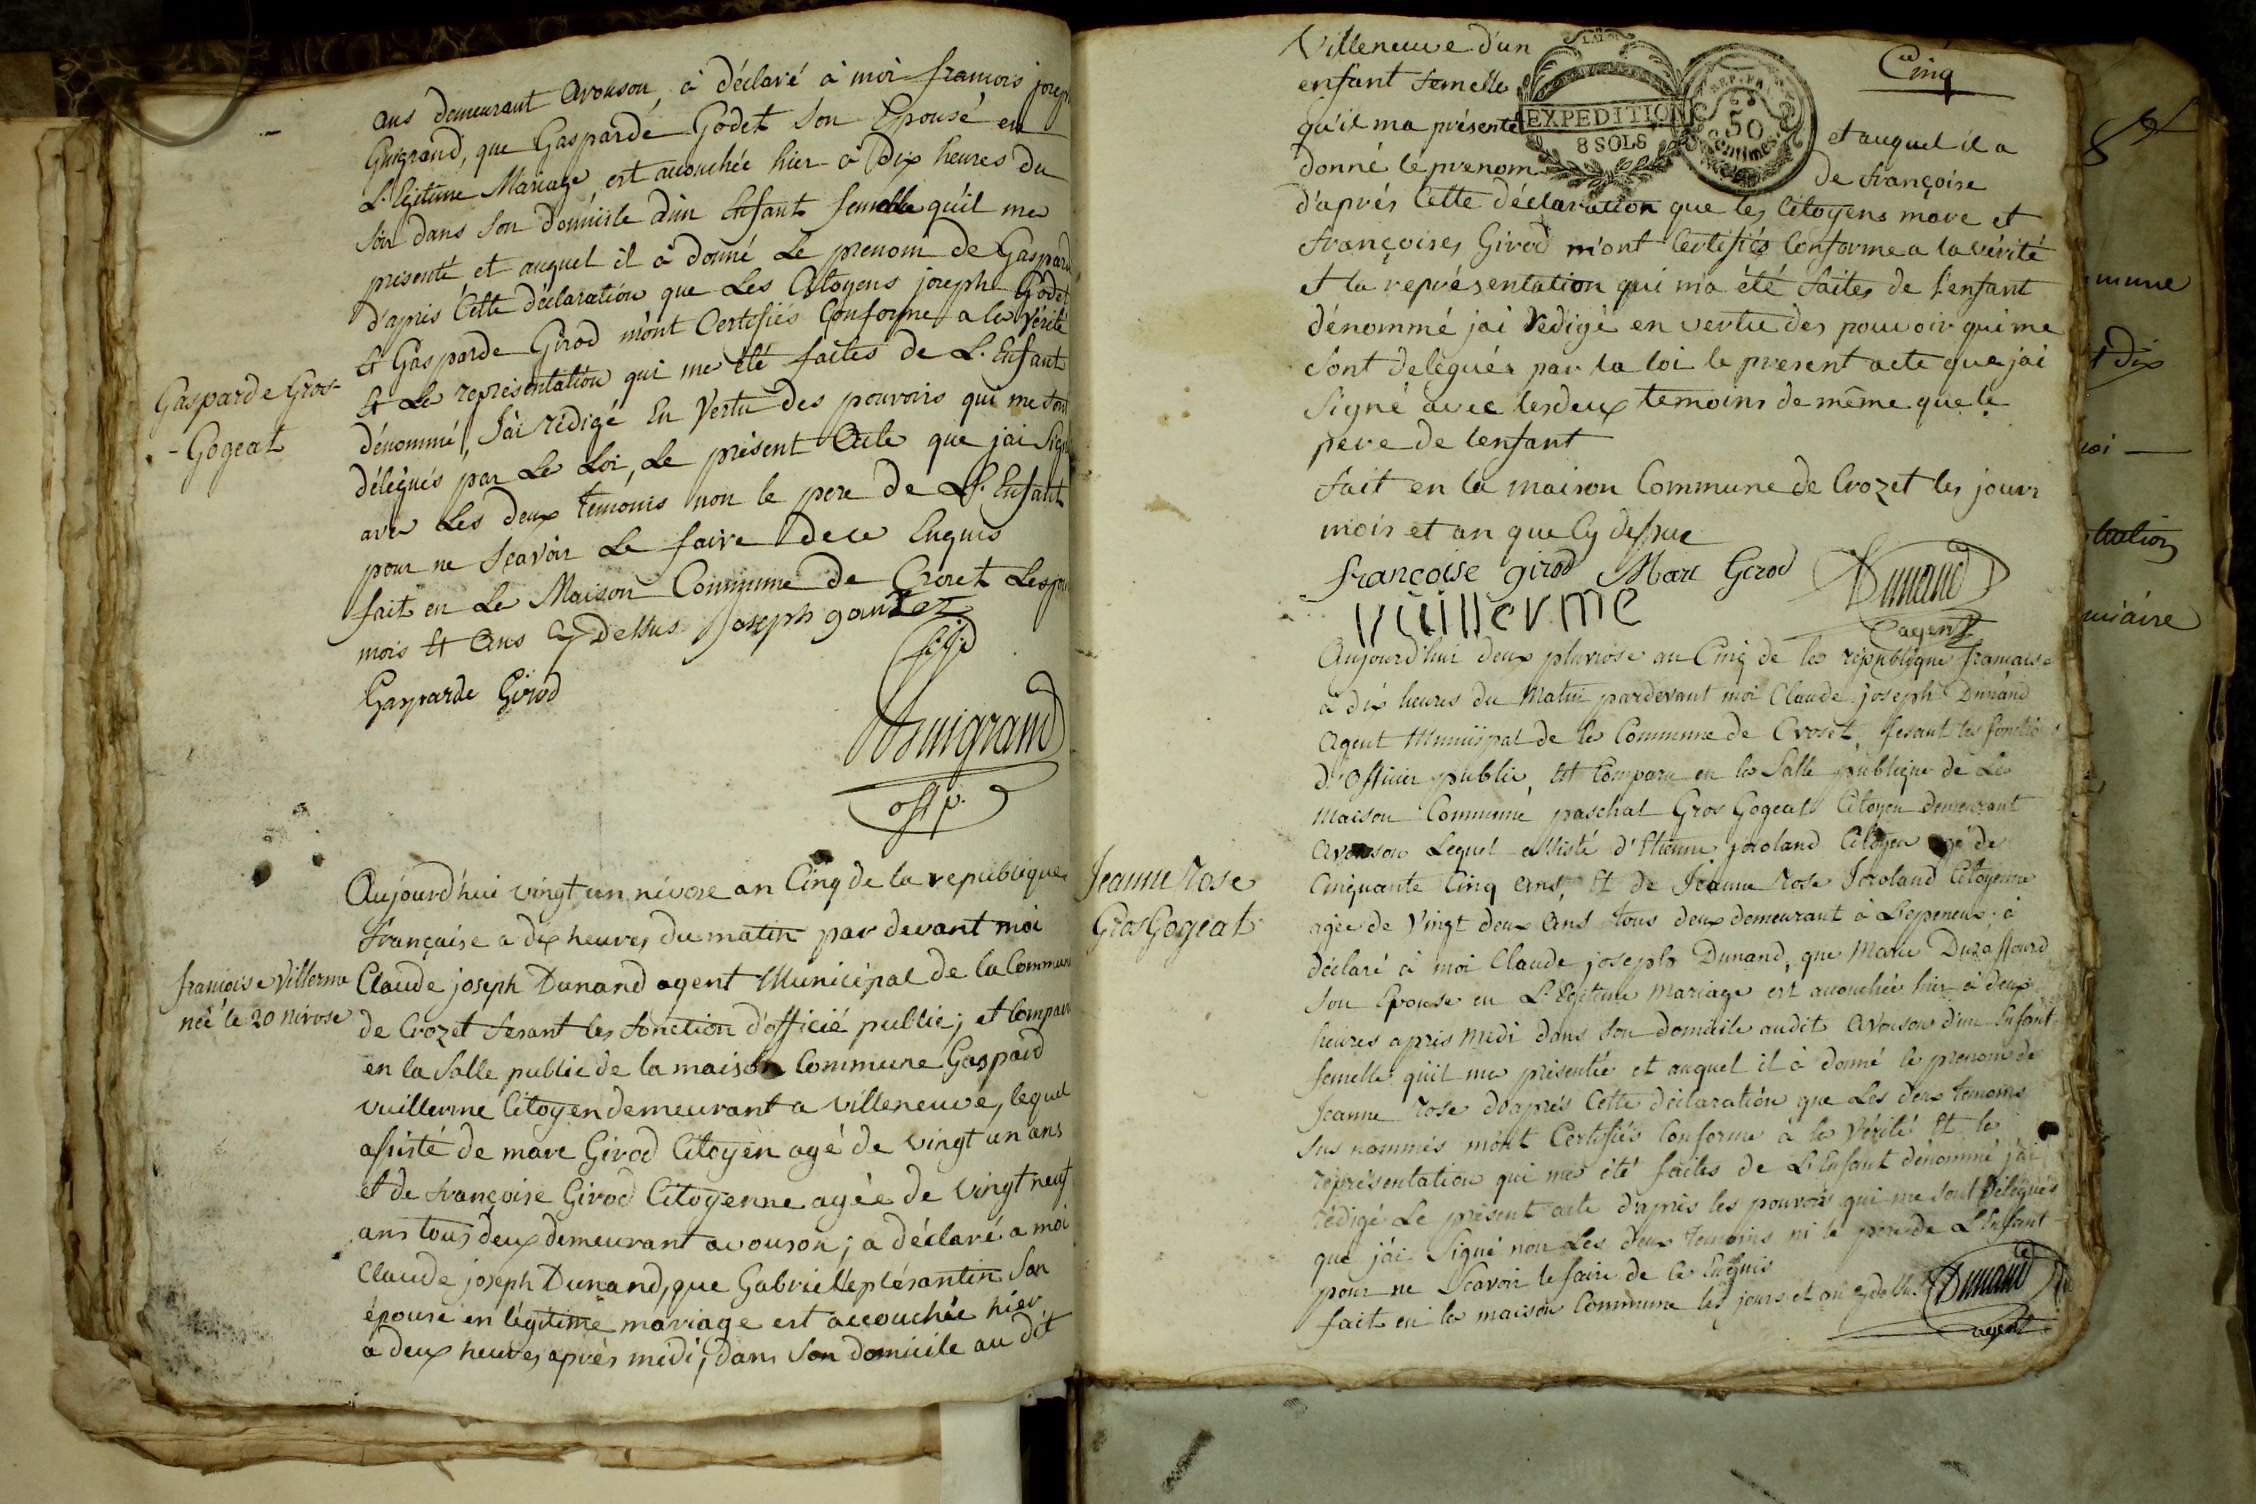 ans demeurant avouson, à déclaré à moi francois joseph
Guigrand, que Gasparde Godet Son Epousé en
L. legitime Mariage, est accouchée hier à Dix heures du
soir dans Son domicile d'un Enfant femelle qu'il me
presenté et auquel il à donné Le prenom de Gaspard
d'après Cette déclaration que Les Citoyens joseph Godet
Et Gasparde Girod m'ont Certifiés Conforme a la Vérité
Et La representation qui me été faites de L. Enfant
Gasparde Gros-
- Gogeat
dénommé, J'ai rédigé En Vertu Des pouvoirs qui me sont
délégués par La Loi, Le présent Acte que jai Signé
avec Les deux temoins non le pere de L. Enfant
pour ne Scavoir Le faire de ce Enquis
fait en La Maison Commune de Crozet Les jour
mois Et Ans Cy Dessus Joseph
Gasparde Girod
Guigrand
off p.
Aujourd'hui vingt un nivose an Cinq de la republique
française a dix heures du matin par devant moi
francoise Villerme
née le 20 nivose
Claude joseph Dunand agent Municipal de la Commune
de Crozet fesant les fonction d'officié public; et Comparu
en la Salle public de la maison Commune Gaspard
vuillerme Citoyen demeurant a villeneuve, lequel
assisté de marc Girod Citoyen agé de vingt un ans
et de françoise Girod Citoyenne agée de vingt neuf
ans tous deux demeurant avouson; a déclaré a moi
Claude joseph Dunand, que Gabrielle plésantin Son
épouse en légitime mariage est accouchée hier
a deux heures après midi, dans Son domicile au dit
Villeneuve d'un
enfant femelle
qu'il ma présenté
donné le prenom
EXPEDITION
8 SOLS
REP. FRA.
50
Centimes
Cinq
et auquel il a
de françoise
d'aprés Cette déclaration que les Citoyens marc et
françoises Girod m'ont Certifiés Conforme a la vérité
et la représentation qui m'a été faites de l'enfant
dénommé jai redigé en vertu des pouvoir qui me
Sont délegués par la loi le present acte que jai
Signé avec les deux temoins de même que le
pere de lenfant
fait en la maison Commune de Crozet les jour
mois et an que Cy dessue
françoise girod Marc Girod Dunand
vuillerme
agent
Aujourd'hui deux pluviose an Cinq de la république francaise
a dix heures du Matin pardevant moi Claude joseph Dunand
Agent Municipal de la Commune de Croset, fesant les fonctions
d'Officier public, Est Comparu en la Salle publique de La
Maison Commune paschal Gros Gogeat Citoyen demeurant
avouson Lequel assisté d'Etienne Citoyen agé de
Cinquante Cinq ans, Et de Jeanne Rose Citoyenne
Jeanne Rose
Gros Gogeat
agée de Vingt deux Ans tous deux demeurant à à
déclaré à moi Claude joseph Dunand, que Marie
son Epouse en L. legitime Mariage est accouchée hier à deux
heures apris Midi dans Son domicile audit avouson d'un Enfant
femelle quil me présentée et auquel il à donné le prenom de
Jeanne Rose d'aprés Cette déclaration que Les deux temoins
sus nommés m'ont Certifiés Conforme à la Vérité Et la
représentation qui me été faites de L. Enfant dénommé j'ai
rédigé Le présent acte d'apris les pouvoirs qui me sont délégués
que j'ai Signé non Les deux temoins ni le pere de L'Enfant
pour ne Scavoir le faire de Ce Enquis
fait en la maison Commune les jours et an Cy dessus Dunand
agent
mune
dix
moi
tution
iciaire